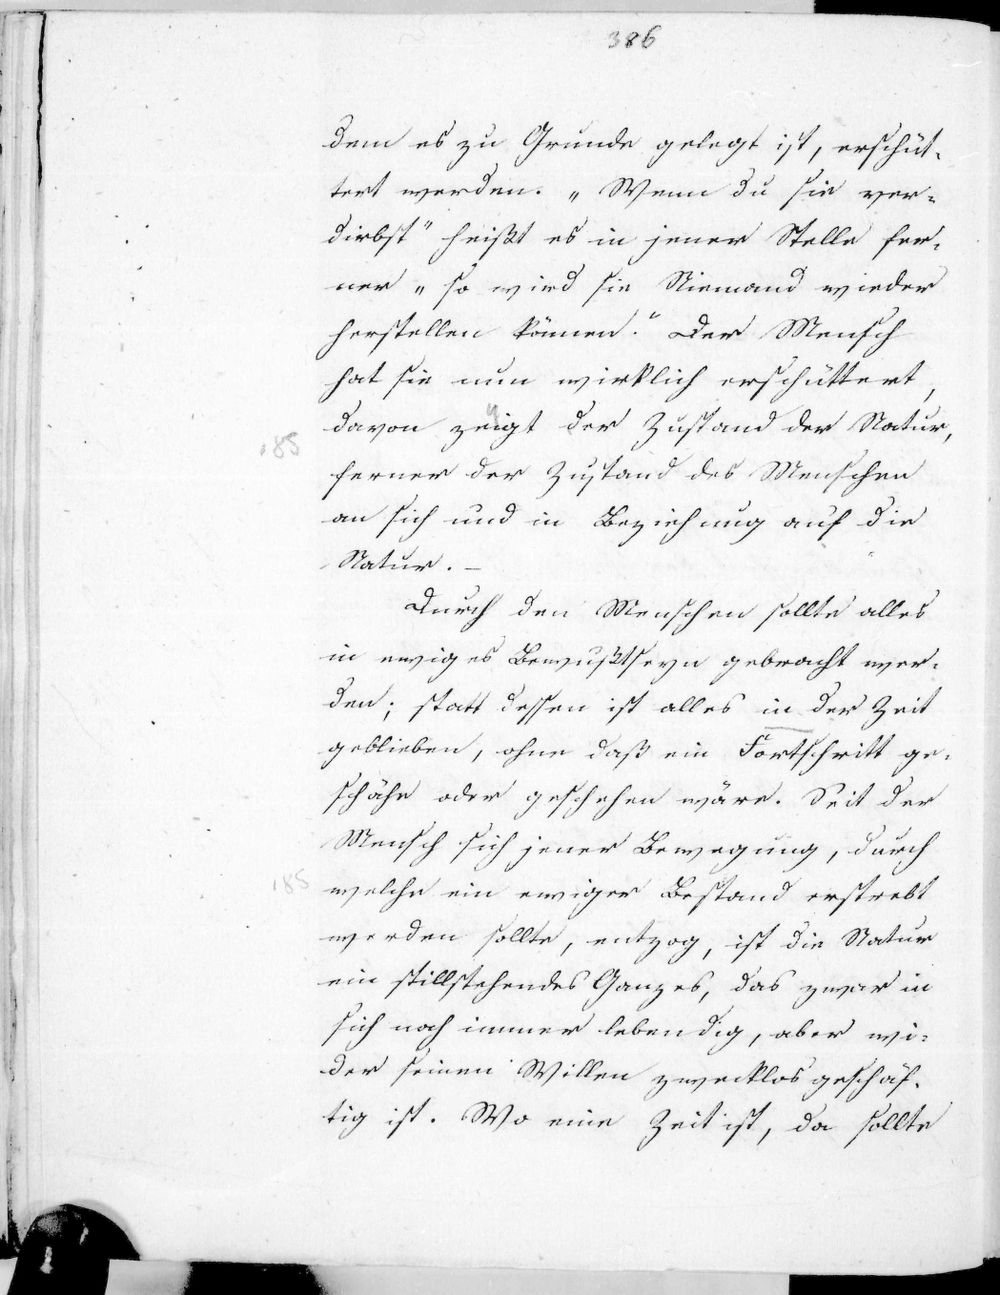 386
dem es zu Grunde gelegt ist, erschüt-
tert werden. „Wenn du sie ver-
dirbst" heißt es in jener Stelle fer-
ner „so wird sie Niemand wieder
herstellen können." Der Mensch
hat sie nun wirklich erschüttert,
davon zeigt der Zustand der Natur,
185
ferner der Zustand des Menschen
an sich und in Beziehung auf die
Natur. –
Durch den Menschen sollte alles
in ewiges Bewußtseyn gebracht wer-
den; statt dessen ist alles in der Zeit
geblieben, ohne daß ein Fortschritt ge-
schähe oder geschehen wäre. Seit der
Mensch sich jener Bewegung, durch
185
welche ein ewiger Bestand erstrebt
werden sollte, entzog, ist die Natur
ein stillstehendes Ganzes, das zwar in
sich noch immer lebendig, aber wi-
der seinen Willen zwecklos geschäf-
tig ist. Wo eine Zeit ist, da sollte